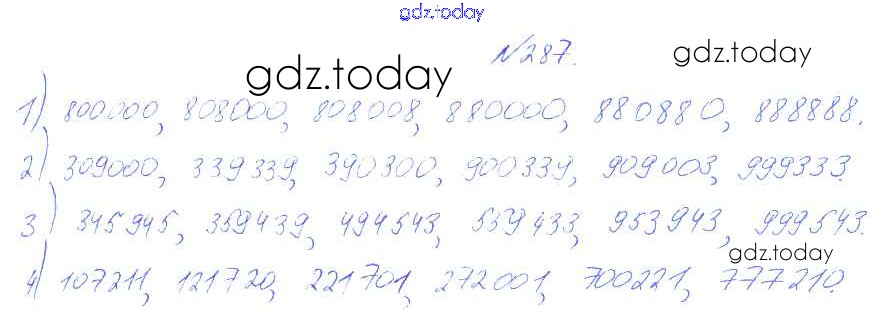 gdz.today
№287.
gdz.today
gdz.today
1) 800000, 808000, 808008, 880000, 880880, 888888.
2) 309000, 339339, 390300, 900339, 909003, 999333.
3) 345945, 359439, 494543, 559433, 953943, 999543.
gdz.today
4) 107211, 121720, 221701, 272001, 700221, 777210.